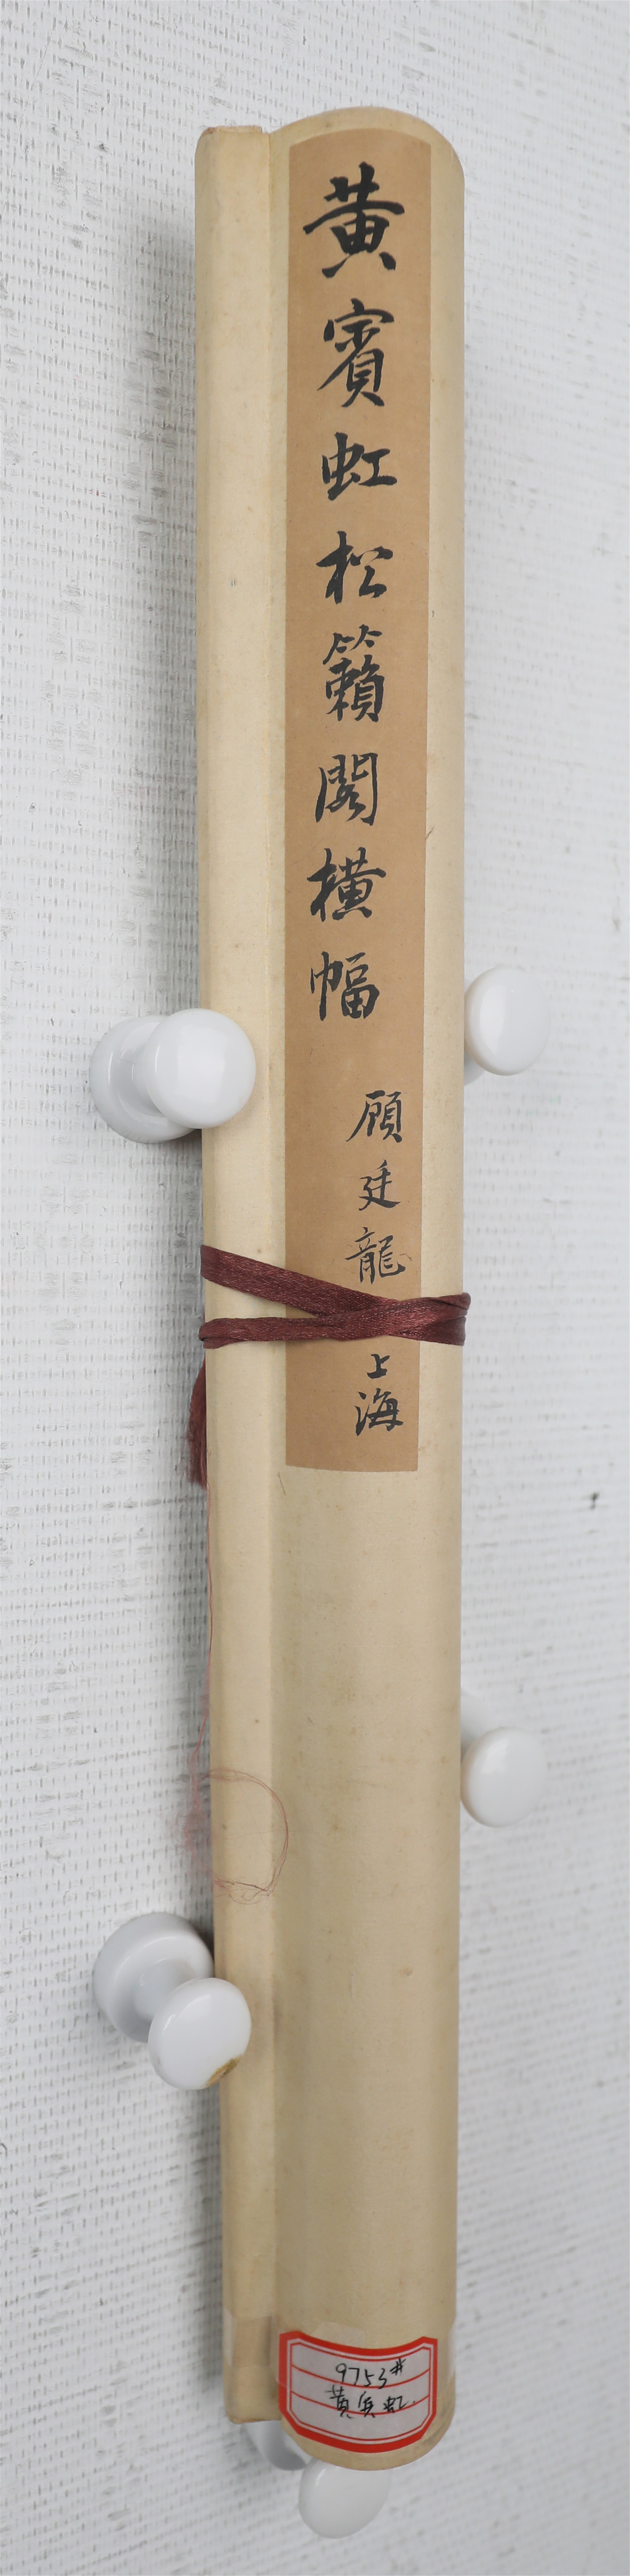 黃賓虹松籟閣橫幅
顾廷龍
上海
9753#
黄宾虹